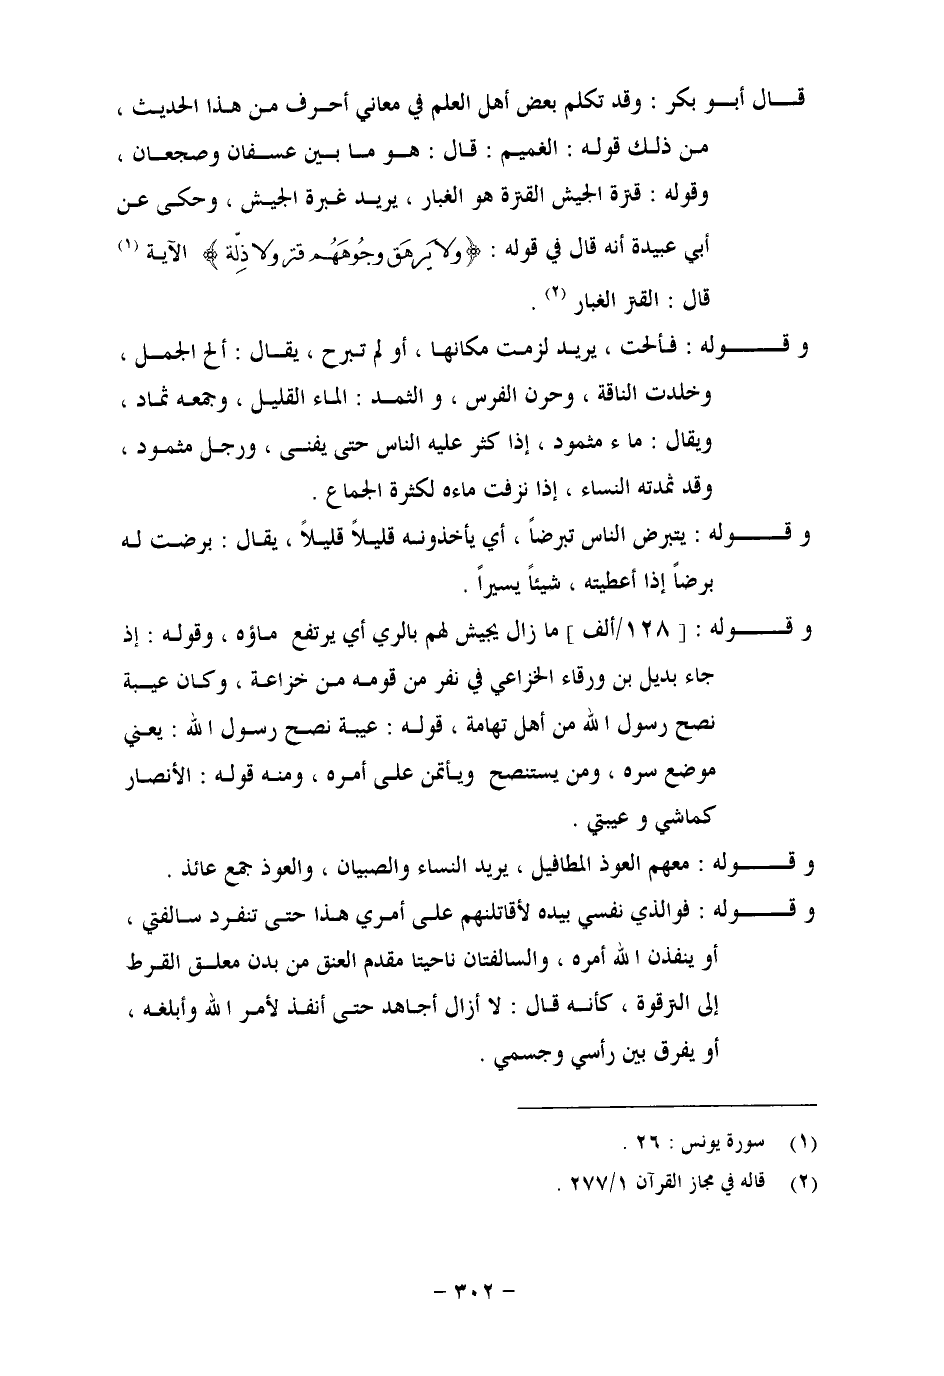 قال أبو بكر : وقد تكلم بعض أهل العلم في معاني أحرف من هذا الحديث ،
من ذلك قوله : الغميم : قال : هو ما بين عسفان وضجعان ،
وقوله : قترة الجيش القترة هو الغبار ، يريد غبرة الجيش ، وحكى عن
أبي عبيدة أنه قال في قوله : ﴿ولا يرهق وجوههم قتر ولا ذلة﴾ الآية (١)
قال : القتر الغبار (٢) .
و قوله : فألحت ، يريد لزمت مكانها ، أو لم تبرح ، يقال : ألح الجمل ،
وخلدت الناقة ، وحرن الفرس ، و الثمد : الماء القليل ، وجمعه ثماد ،
ويقال : ماء مثمود ، إذا كثر عليه الناس حتى يفنى ، ورجل مثمود ،
وقد ثمدته النساء ، إذا نزفت ماءه لكثرة الجماع .
و قوله : يتبرض الناس تبرضاً ، أي يأخذونه قليلاً قليلاً ، يقال : برضت له
برضاً إذا أعطيته ، شيئاً يسيراً .
و قوله : [ ١٢٨/ألف ] ما زال يجيش لهم بالري أي يرتفع ماؤه ، وقوله : إذ
جاء بديل بن ورقاء الخزاعي في نفر من قومه من خزاعة ، وكان عيبة
نصح رسول الله من أهل تهامة ، قوله : عيبة نصح رسول الله : يعني
موضع سره ، ومن يستنصح ويأتمن على أمره ، ومنه قوله : الأنصار
كماشي و عيبتي .
و قوله : معهم العوذ المطافيل ، يريد النساء والصبيان ، والعوذ جمع عائذ .
و قوله : فوالذي نفسي بيده لأقاتلنهم على أمري هذا حتى تنفرد سالفتي ،
أو ينفذن الله أمره ، والسالفتان ناحيتا مقدم العنق من بدن معلق القرط
إلى الترقوة ، كأنه قال : لا أزال أجاهد حتى أنفذ لأمر الله وأبلغه ،
أو يفرق بين رأسي وجسمي .
(١) سورة يونس : ٢٦ .
(٢) قاله في مجاز القرآن ٢٧٧/١ .
- ٣٠٢ -